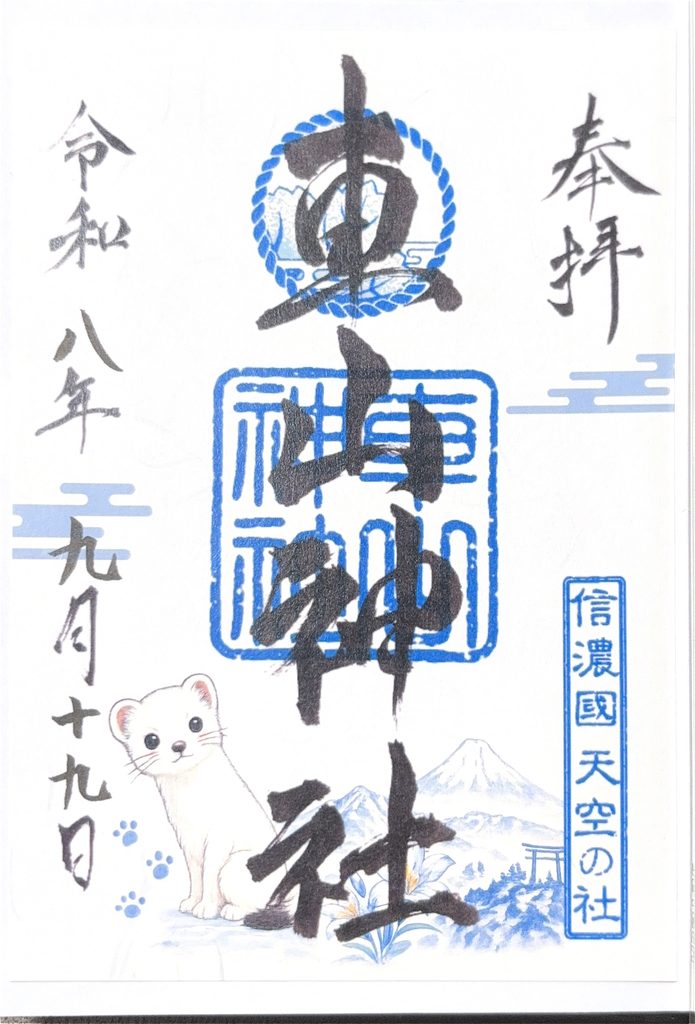 奉拝
信濃國 天空の社
車山神社
車山
神社
令和八年九月十九日